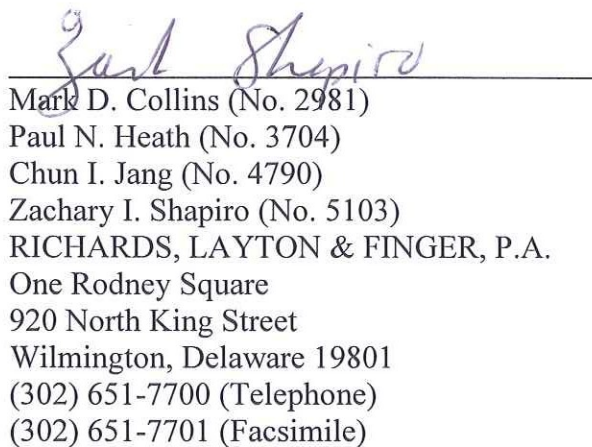 Zach Shapiro
Mark D. Collins (No. 2981)
Paul N. Heath (No. 3704)
Chun I. Jang (No. 4790)
Zachary I. Shapiro (No. 5103)
RICHARDS, LAYTON & FINGER, P.A.
One Rodney Square
920 North King Street
Wilmington, Delaware 19801
(302) 651-7700 (Telephone)
(302) 651-7701 (Facsimile)